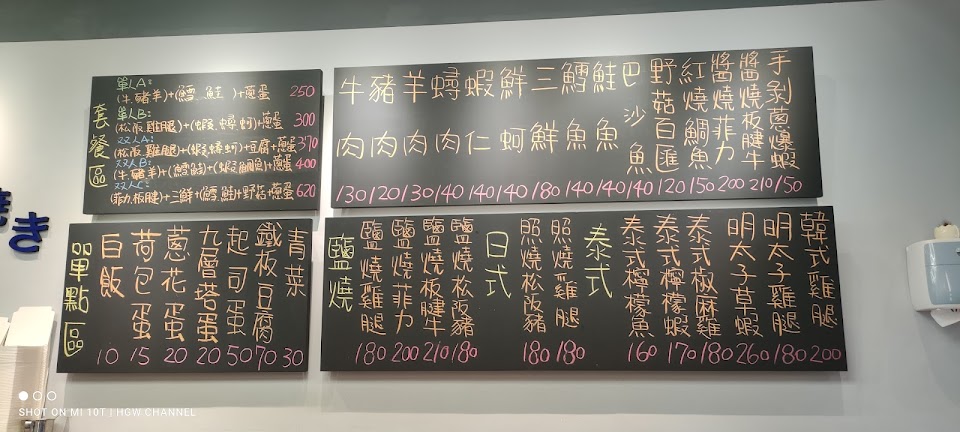 套餐區
單人A:
(牛豬羊)+(鱈.鮭 )+蔥蛋 250
單人B:
(松阪.雞腿)+(蝦.蟳.蚵)+蔥蛋 300
双人A:
(松阪.雞腿)+(蝦.蟳蚵)+豆腐+蔥蛋 370
双人B:
(牛豬羊)+(鱈鮭)+(蝦.鯛魚)+蔥蛋 400
双人C:
(菲力.板腱)+三鮮+(鱈.鮭)+野菇+蔥蛋 620
牛肉 130
豬肉 120
羊肉 130
蟳肉 140
蝦仁 140
鮮蚵 140
三鮮 180
鱈魚 140
鮭魚 140
巴沙魚 140
野菇百匯 120
紅燒鯛魚 150
醬燒菲力 200
醬燒板腱牛 210
手剝蔥爆蝦 150
き
單點區
白飯 10
荷包蛋 15
蔥花蛋 20
九層塔蛋 20
起司蛋 50
鐵板豆腐 70
青菜 30
鹽燒
鹽燒雞腿 180
鹽燒菲力 200
鹽燒板腱牛 210
鹽燒松阪豬 180
日式
照燒松阪豬 180
照燒雞腿 180
泰式
泰式檸檬魚 160
泰式檸檬蝦 170
泰式椒麻雞 180
明太子草蝦 260
明太子雞腿 180
韓式雞腿 200
SHOT ON MI 10T | HGW CHANNEL